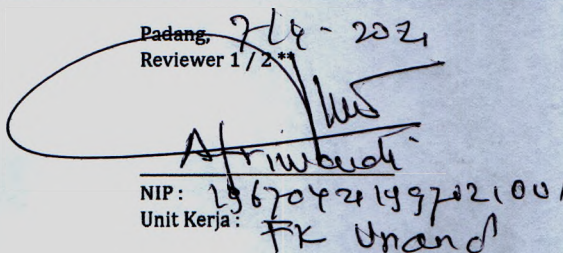 Padang, 7/4 - 2021
Reviewer 1 / 2 **
Afriwardi
NIP : 196704211997021001
Unit Kerja : FK Unand